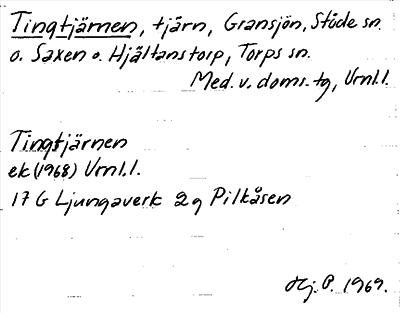 Tingtjärnen, tjärn, Gransjön, Stöde sn.
o. Saxen o. Hjältanstorp, Torps sn.
Med. v. doms-tg, Vrnl.l.
Tingtjärnen
ek (1968) Vrnl.l.
17 G Ljungaverk 2g Pilkåsen
Hj. P. 1969.